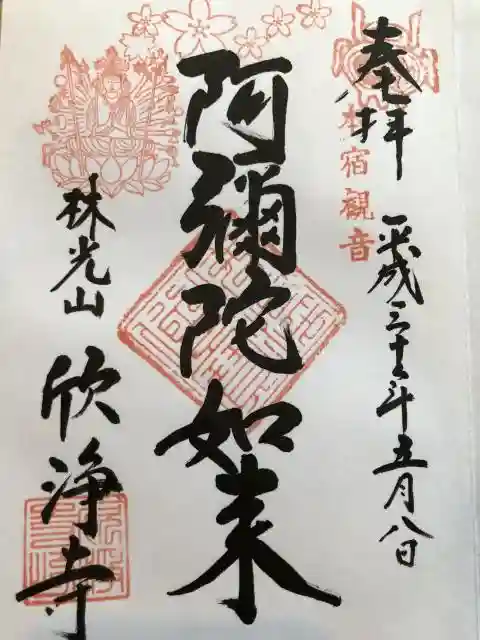 奉拝
本宿観音
平成三十年五月八日
阿彌陀如来
林光山
欣浄寺